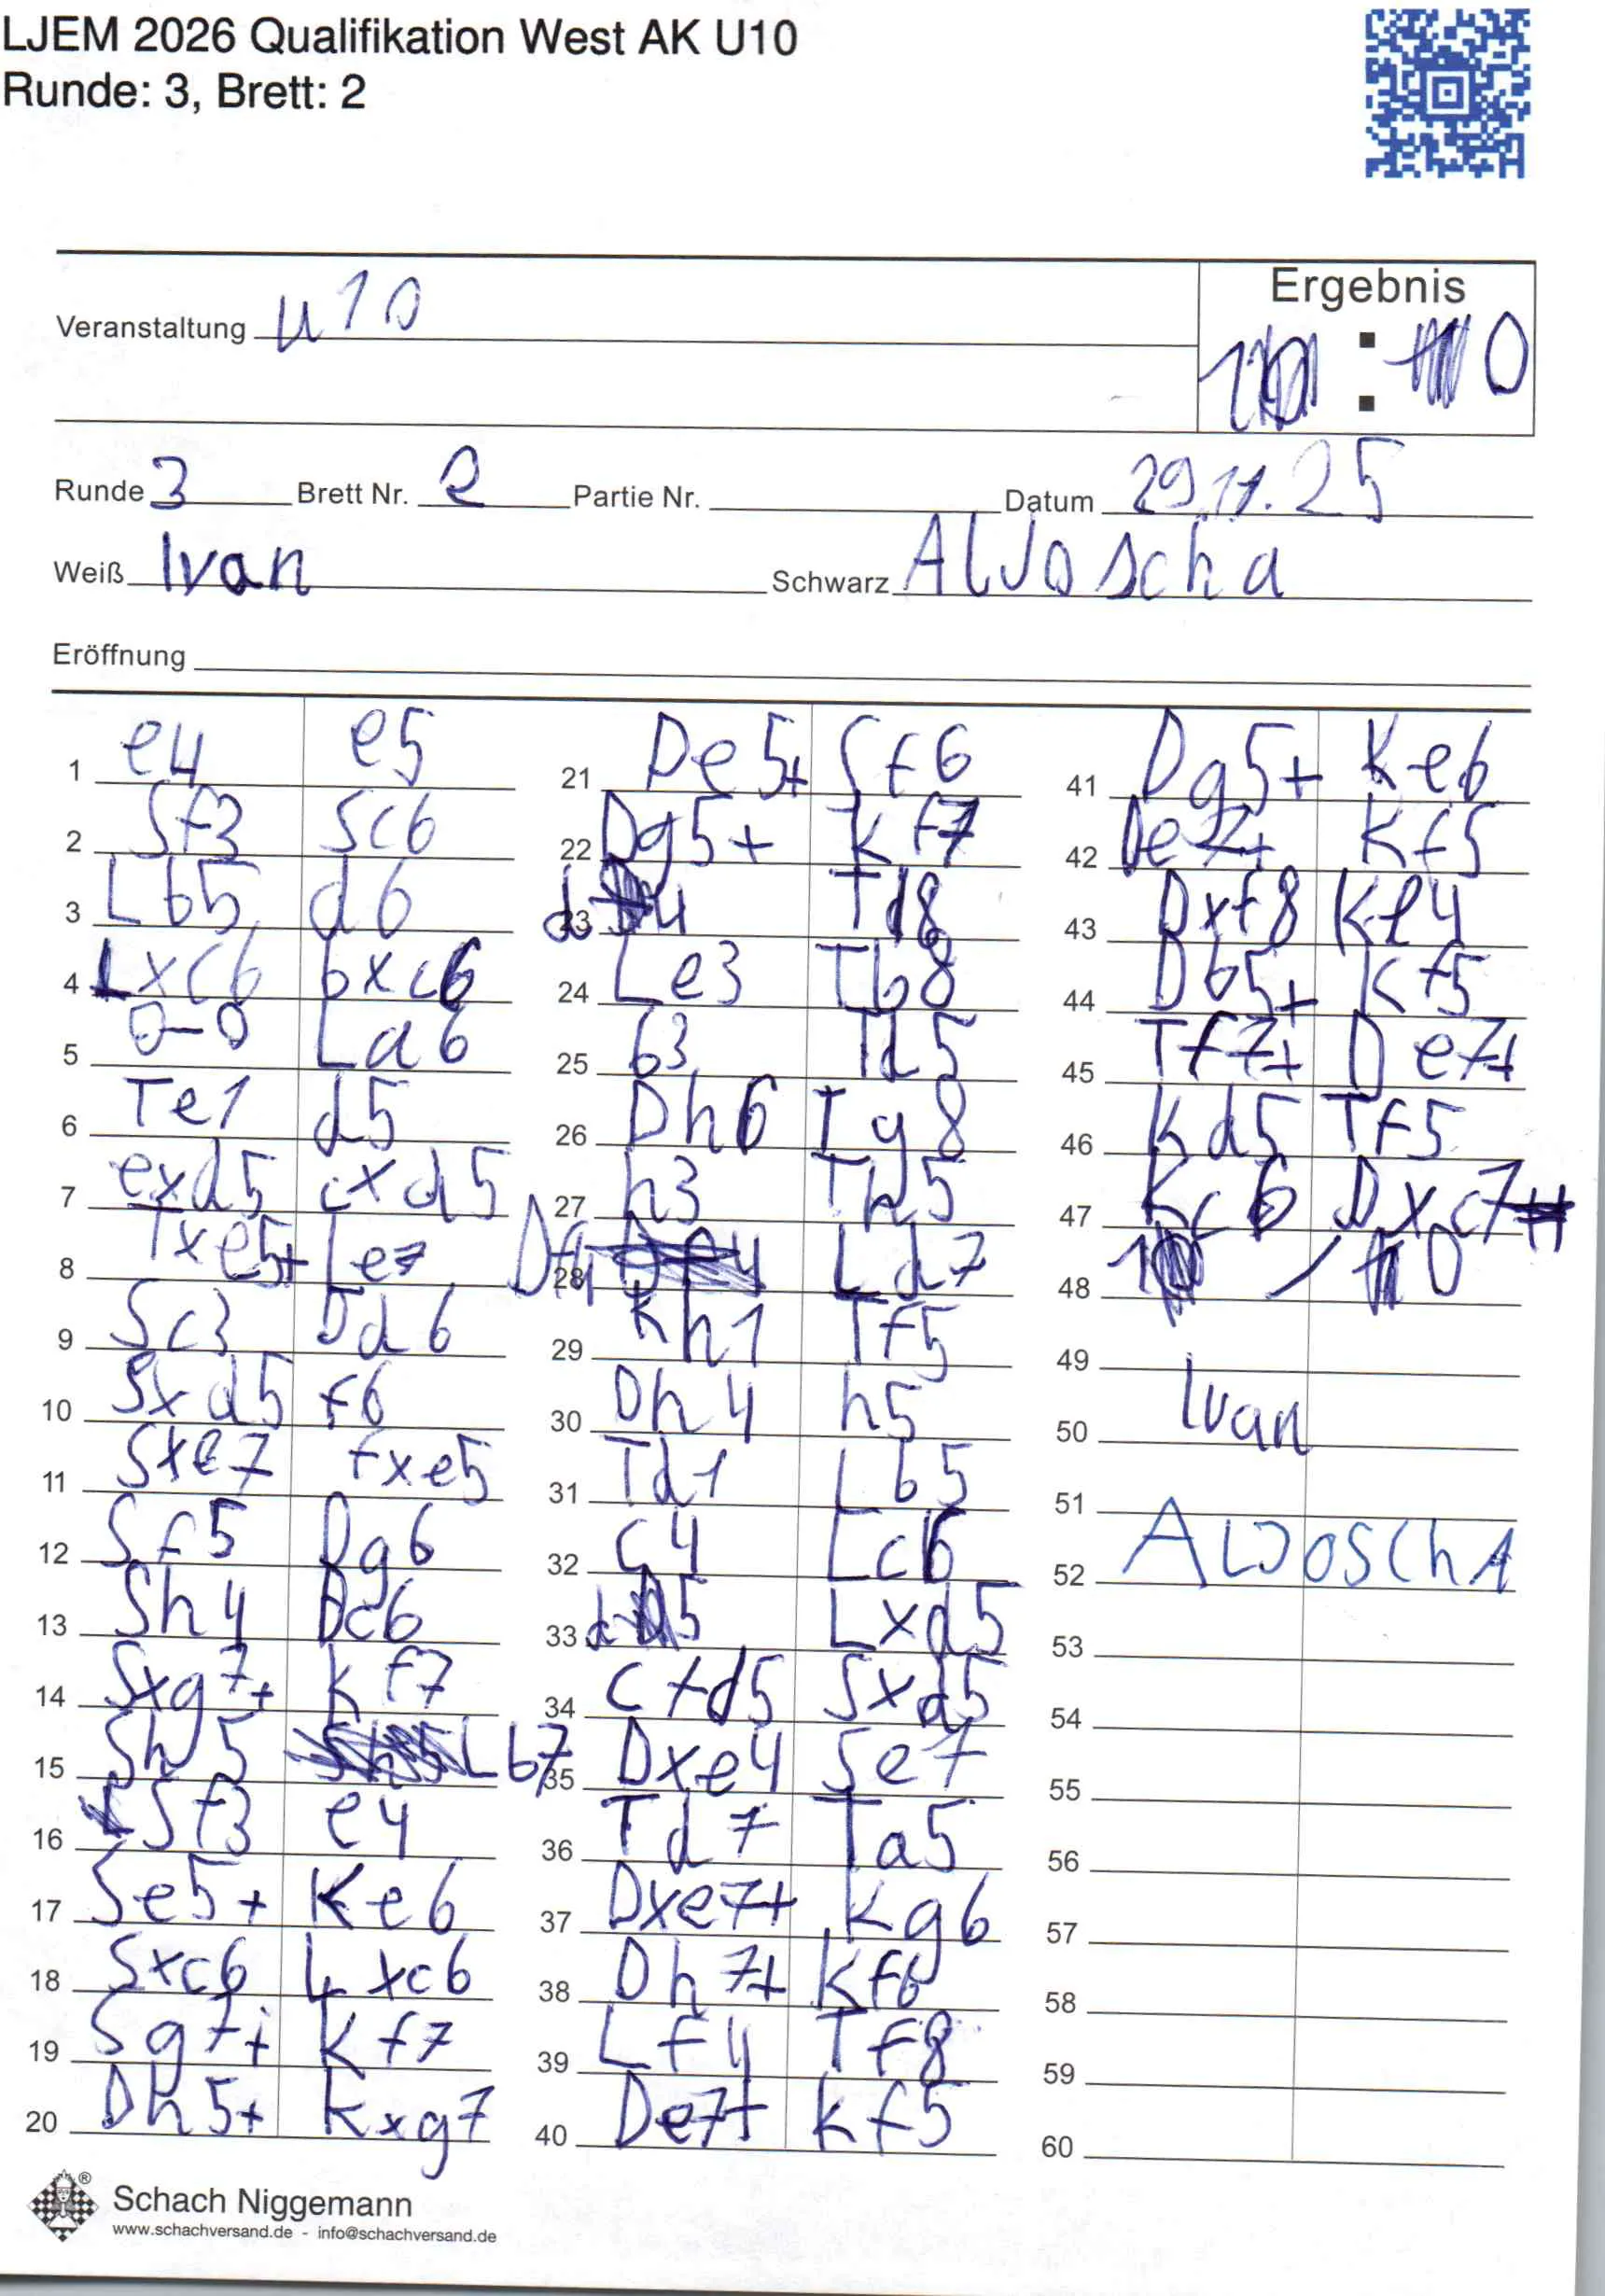 LJEM 2026 Qualifikation West AK U10
Runde: 3, Brett: 2
Veranstaltung u10
Ergebnis
1 : 0
Runde 3 Brett Nr. 2 Partie Nr. Datum 29.11.25
Weiß Ivan Schwarz AlJoscha
Eröffnung
1 e4 e5
2 Sf3 Sc6
3 Lb5 d6
4 Lxc6 bxc6
5 0-0 La6
6 Te1 d5
7 exd5 cxd5
8 Txe5+ Le7
9 Sc3 Dd6
10 Sxd5 f6
11 Sxe7 fxe5
12 Sf5 Dg6
13 Sh4 Dc6
14 Sxg7+ Kf7
15 Sh5 Lb7
16 Sf3 e4
17 Se5+ Ke6
18 Sxc6 Lxc6
19 Sg7+ Kf7
20 Dh5+ Kxg7
21 De5+ Sf6
22 Dg5+ Kf7
23 d4 Td8
24 Le3 Tb8
25 b3 Td5
26 Dh6 Tg8
27 h3 Th5
28 Df4 Ld7
29 Kh1 Tf5
30 Dh4 h5
31 Td1 Lb5
32 c4 Lc6
33 d5 Lxd5
34 cxd5 Sxd5
35 Dxe4 Se7
36 Td7 Ta5
37 Dxe7+ Kg6
38 Dh7+ Kf6
39 Lf4 Tf8
40 De7+ Kf5
41 Dg5+ Ke6
42 De7+ Kf5
43 Dxf8 Ke4
44 Db5+ Kf5
45 Tf7+ De7+
46 Kd5 Tf5
47 Kc6 Dxc7#
48 1 / 0
49
50 Ivan
51
52 ALJOSChA
53
54
55
56
57
58
59
60
®
Schach Niggemann
www.schachversand.de - info@schachversand.de